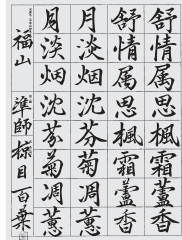 舒情属思楓霜蘆香
舒情属思楓霜蘆香
月淡烟沈芬菊凋蕙
月淡烟沈芬菊凋蕙
福山 準師 目百葉